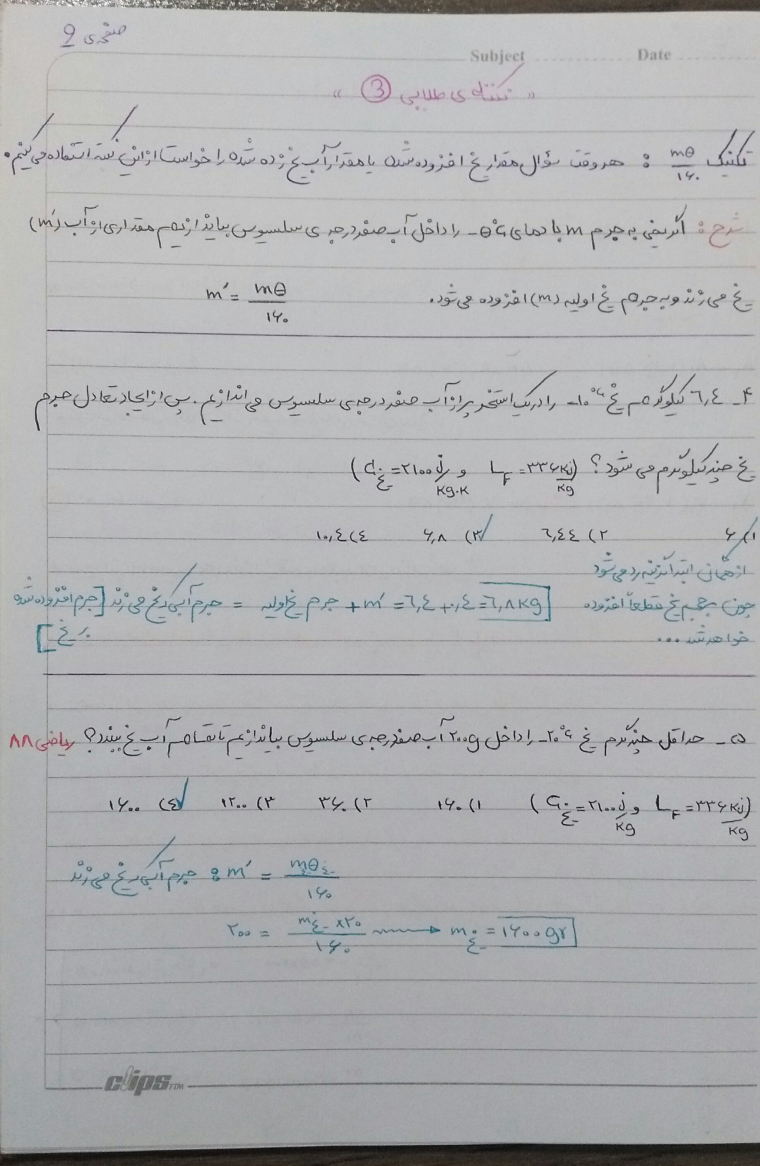 صفحه ی 9
Subject Date
« نکته ی طلایی 3 »
تکنیک mθ/۱۶۰ : هر وقت سؤال مقدار یخ افزوده شده یا مقدار آب یخ زده شده را خواست از این نکته استفاده می کنیم.
شرح : اگر یخی به جرم m با دمای θ°c- را داخل آب صفر درجه ی سلسیوس بیاندازیم مقداری از آب (m′)
یخ می زند و به جرم یخ اولیه (m) افزوده می شود. m′ = mθ/۱۶۰
۴- ۶,۴ کیلوگرم یخ ۱۰°c- را در یک استخر پر از آب صفر درجه ی سلسیوس می اندازیم. پس از ایجاد تعادل جرم
یخ چند کیلوگرم می شود؟ (LF = ۳۳۶ kj/kg و Cیخ = ۲۱۰۰ j/kg.K)
۱) ۶ ۲) ۶,۴۴ ۳) ۶,۸ ۴) ۱۰,۴
از همان ابتدا گزینه رد می شود
چون حجم یخ قطعاً افزوده
خواهد شد ...
جرم آبی که یخ می زند [جرم افزوده شده = جرم یخ اولیه + m′ = ۶,۴ + ۰,۴ = ۶,۸ kg
بر یخ]
۵- حداقل چند گرم یخ ۲۰°c- را داخل ۲۰۰g آب صفر درجه ی سلسیوس بیاندازیم تا تمام آب یخ ببندد؟ ریاضی ۸۸
(LF = ۳۳۶ kj/kg و Cیخ = ۲۱۰۰ j/kg) ۱) ۱۶۰ ۲) ۳۶۰ ۳) ۱۲۰۰ ۴) ۱۶۰۰
جرم آبی که یخ می زند : m′ = mیخ θیخ/۱۶۰
۲۰۰ = mیخ ×۲۰/۱۶۰ → mیخ = ۱۶۰۰ gr
clips TM